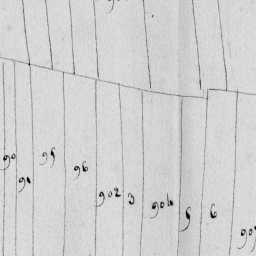 90
91
95
96
902
3
904
5
6